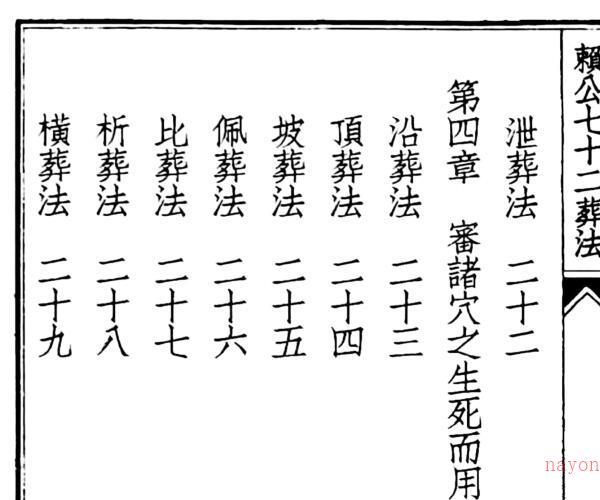 賴公七十二葬法
泄葬法 二十二
第四章 審諸穴之生死而用
沿葬法 二十三
頂葬法 二十四
坡葬法 二十五
佩葬法 二十六
比葬法 二十七
析葬法 二十八
橫葬法 二十九
nayon